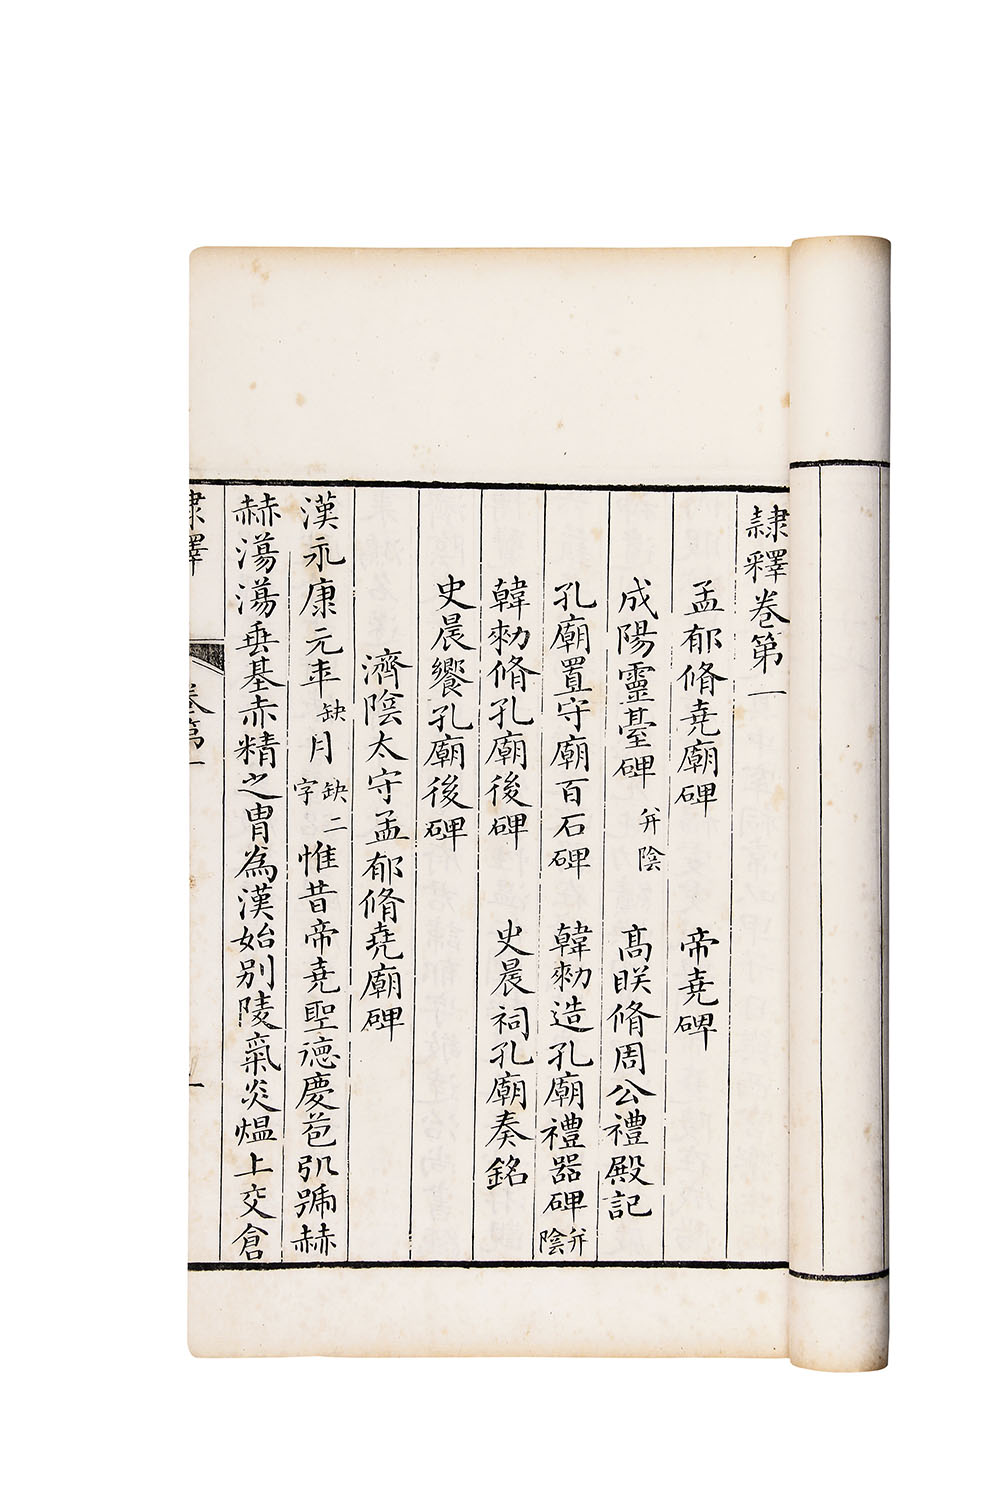 隷釋卷第一
孟郁脩堯廟碑 帝堯碑
成陽靈臺碑 并陰 高眹脩周公禮殿記
孔廟置守廟百石碑 韓勑造孔廟禮器碑 并陰
韓勑脩孔廟後碑 史晨祠孔廟奏銘
史晨饗孔廟後碑
濟陰太守孟郁脩堯廟碑
漢永康元年缺月缺二字惟昔帝堯聖德慶苞弘號赫
赫湯湯垂基赤精之胄為漢始別陵氣炎熅上交倉
隷釋 卷第一